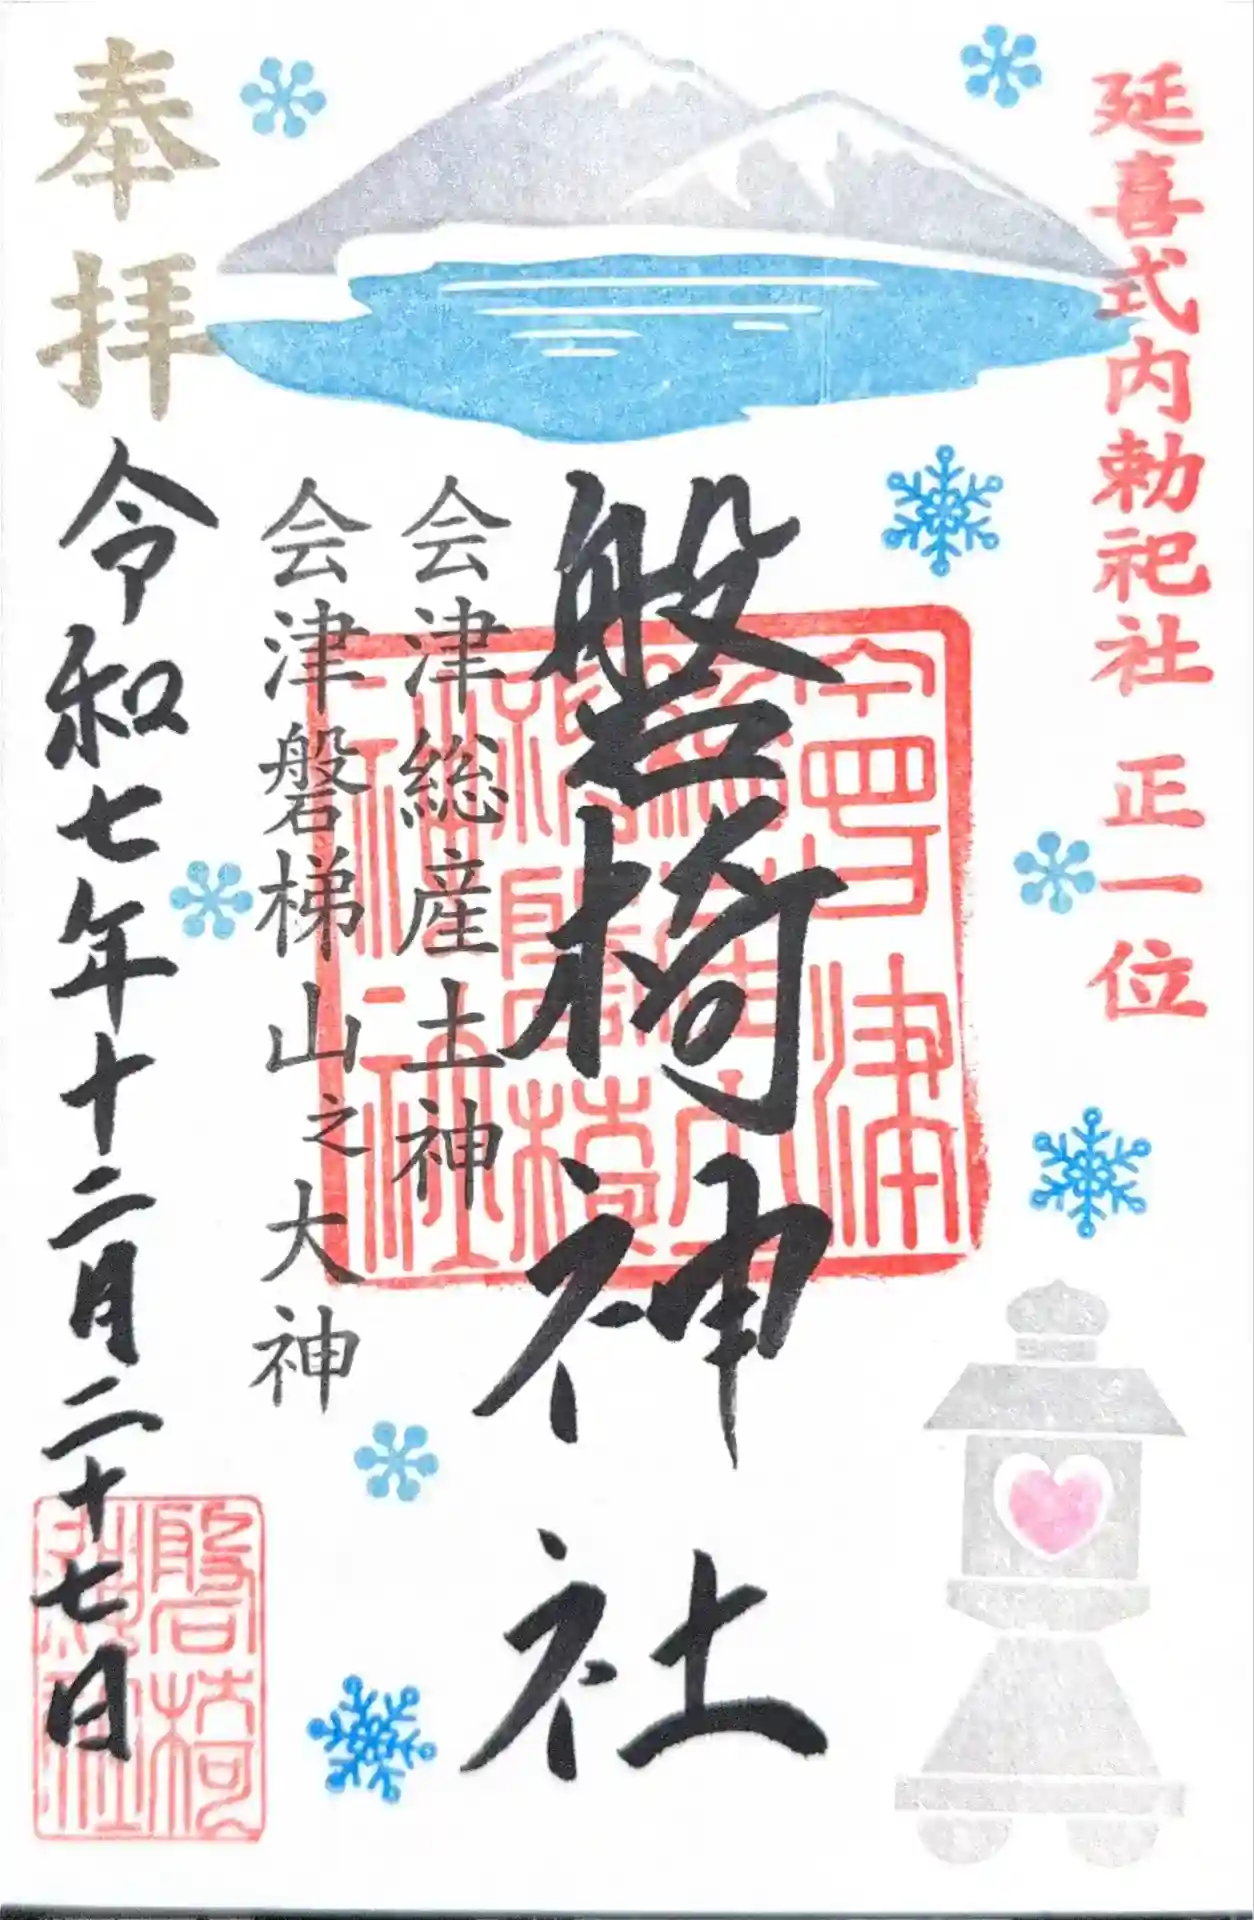 延喜式内勅祀社 正一位
磐椅神社
会津総産土神
会津磐梯山之大神
奉拝
令和七年十二月二十七日
磐椅